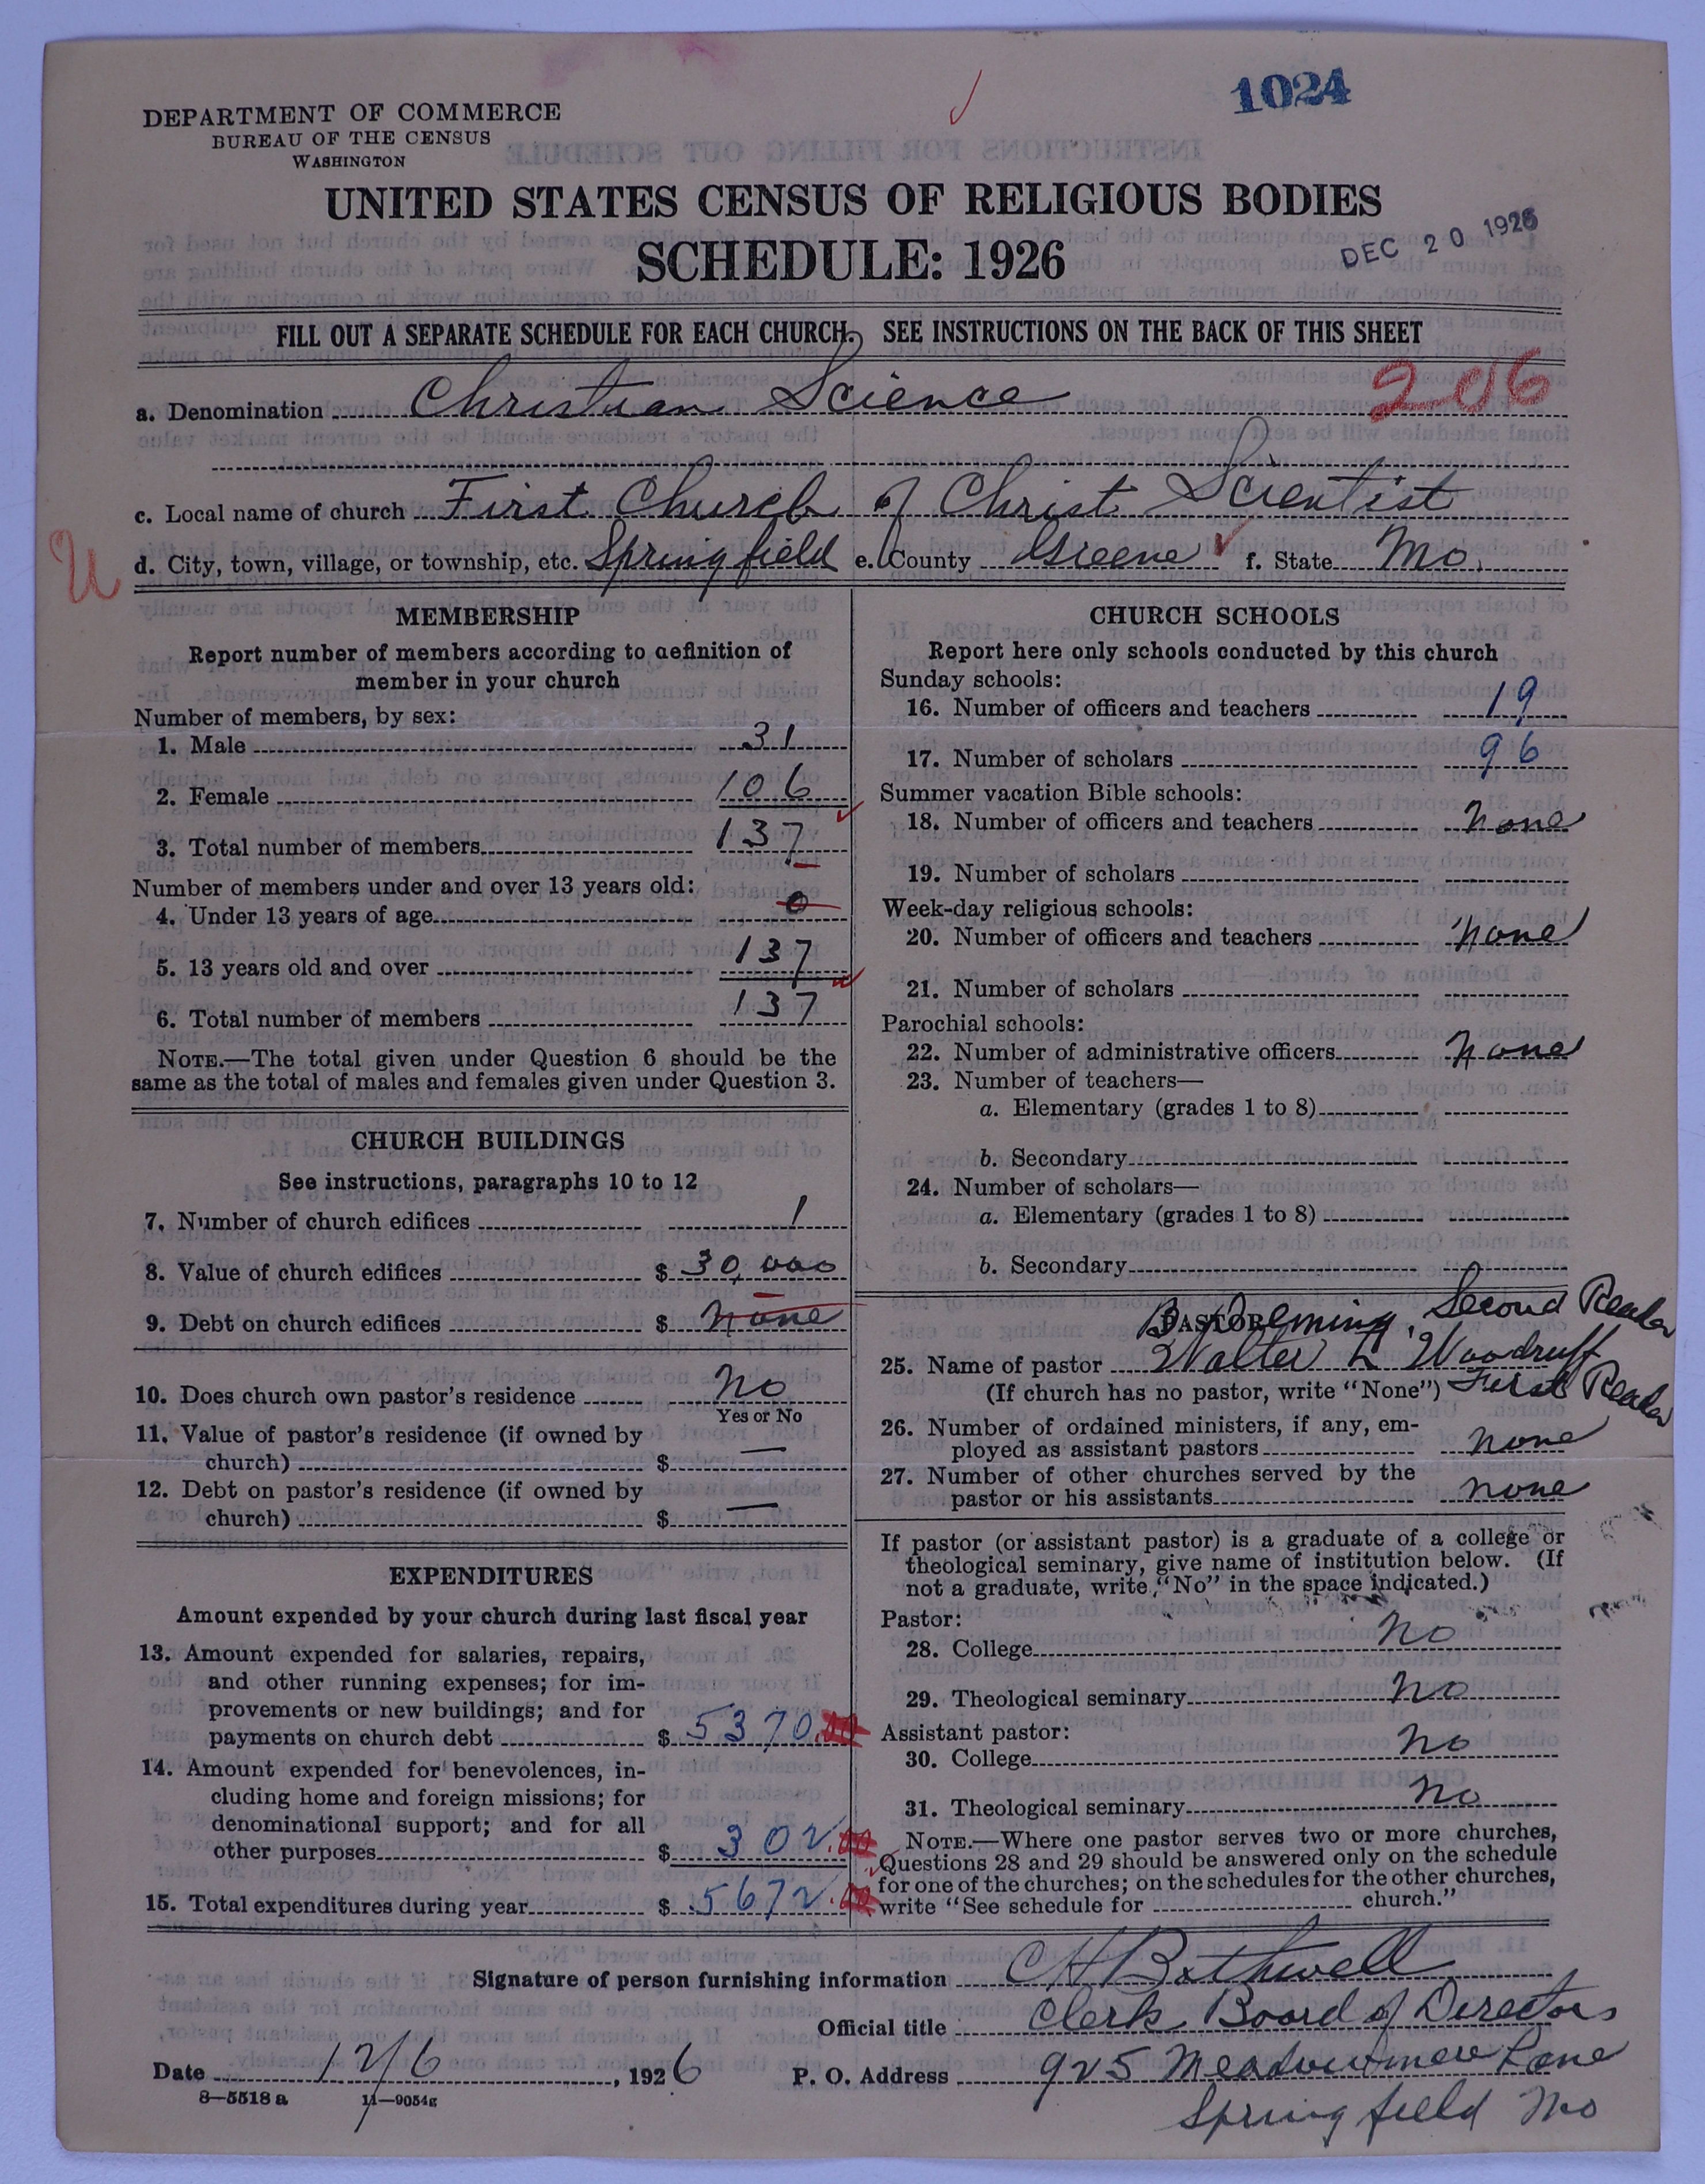 1024
DEPARTMENT OF COMMERCE
BUREAU OF THE CENSUS
WASHINGTON
UNITED STATES CENSUS OF RELIGIOUS BODIES
SCHEDULE: 1926
DEC 20 1926
FILL OUT A SEPARATE SCHEDULE FOR EACH CHURCH. SEE INSTRUCTIONS ON THE BACK OF THIS SHEET
206
a. Denomination Christian Science
c. Local name of church First Church of Christ Scientist
U
d. City, town, village, or township, etc. Springfield e. County Greene f. State Mo.
MEMBERSHIP
Report number of members according to definition of
member in your church
Number of members, by sex:
1. Male 31
2. Female 106
3. Total number of members 137
Number of members under and over 13 years old:
4. Under 13 years of age 0
5. 13 years old and over 137
6. Total number of members 137
NOTE.—The total given under Question 6 should be the
same as the total of males and females given under Question 3.
CHURCH BUILDINGS
See instructions, paragraphs 10 to 12
7. Number of church edifices 1
8. Value of church edifices $ 30,000
9. Debt on church edifices $ none
10. Does church own pastor's residence No
Yes or No
11. Value of pastor's residence (if owned by
church) $ —
12. Debt on pastor's residence (if owned by
church) $ —
EXPENDITURES
Amount expended by your church during last fiscal year
13. Amount expended for salaries, repairs,
and other running expenses; for im-
provements or new buildings; and for
payments on church debt $ 5370.00
14. Amount expended for benevolences, in-
cluding home and foreign missions; for
denominational support; and for all
other purposes $ 302.00
15. Total expenditures during year $ 5672.00
CHURCH SCHOOLS
Report here only schools conducted by this church
Sunday schools:
16. Number of officers and teachers 19
17. Number of scholars 96
Summer vacation Bible schools:
18. Number of officers and teachers None
19. Number of scholars
Week-day religious schools:
20. Number of officers and teachers None
21. Number of scholars
Parochial schools:
22. Number of administrative officers None
23. Number of teachers—
a. Elementary (grades 1 to 8)
b. Secondary
24. Number of scholars—
a. Elementary (grades 1 to 8)
b. Secondary
Second Reader
PASTOR
25. Name of pastor Walter L Woodruff
(If church has no pastor, write "None") First Reader
26. Number of ordained ministers, if any, em-
ployed as assistant pastors none
27. Number of other churches served by the
pastor or his assistants none
If pastor (or assistant pastor) is a graduate of a college or
theological seminary, give name of institution below. (If
not a graduate, write "No" in the space indicated.)
Pastor:
28. College No
29. Theological seminary No
Assistant pastor:
30. College No
31. Theological seminary No
NOTE.—Where one pastor serves two or more churches,
Questions 28 and 29 should be answered only on the schedule
for one of the churches; on the schedules for the other churches,
write "See schedule for church."
Signature of person furnishing information CH Bothwell
Official title Clerk Board of Directors
Date 12/6, 1926 P. O. Address 925 Meadowmere Lane
Springfield Mo
8—5518 a 11—9054g